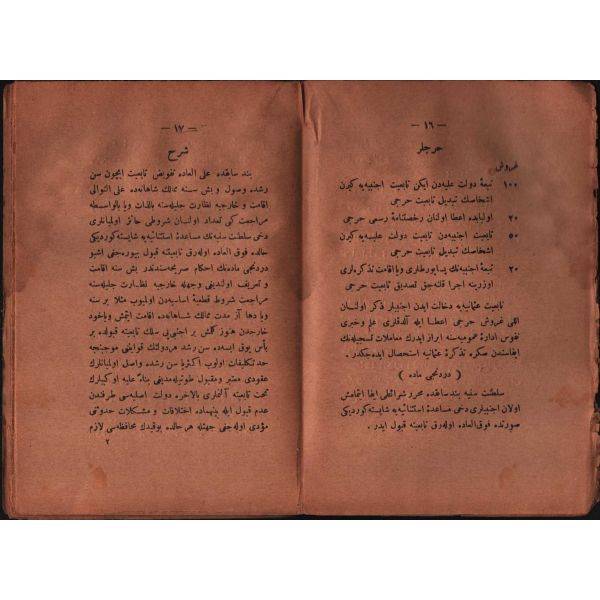 — ١٦ —
خرجلر
غروش
١٠٠ تبعهٔ دولت علیه‌دن ایکن تابعیت اجنبیه‌یه کیرن
اشخاصك تبدیل تابعیت خرجی
٢٠ اولبابده اعطا اولنان رخصتنامهٔ رسمی خرجی
٥٠ تابعیت اجنبیه‌دن تابعیت دولت علیه‌یه کیرن
اشخاصك تبدیل تابعیت خرجی
٢٠ تبعهٔ اجنبیه‌نك پساپورطلری ویا اقامت تذکره‌لری
اوزرینه اجرا قلنه‌جق تصدیق تابعیت خرجی
تابعیت عثمانیه‌یه دخالت ایدن اجنبیلر ذکر اولنان
اللی غروش خرجی اعطا ایله آلدقلری علم وخبری
نفوس ادارهٔ عمومیه‌سنه ابراز ایدرك معاملات تسجیلیه‌نك
ایفاسندن صکره تذکرهٔ عثمانیه استحصال ایده‌جکدر .
( دردنجی ماده )
سلطنت سنیه بند سابقده محرر شرائطی ایفا ایتمامش
اولان اجنبیلری دخی مساعدهٔ استثنائیه‌یه شایسته کوردیکی
صورتده فوق العاده اوله‌رق تابعیته قبول ایدر .
— ١٧ —
شرح
بند سابقده علی العاده تفویض تابعیت ایچون سن
رشده وصول و بش سنه ممالك شاهانه‌ده علی التوالی
اقامت و خارجیه نظارت جلیله‌سنه بالذات ویا بالواسطه
مراجعت کبی تعداد اولنان شروطی حائز اولمیانلری
دخی سلطنت سنیه‌نك مساعدهٔ استثنائیه‌یه شایسته کوردیکی
حالده فوق العاده اوله‌رق تابعیته قبول بیوره‌جغی اشبو
دردنجی ماده‌نك احکام صریحه‌سندندر بش سنه اقامت
و تعریف اولندیغی وجهله خارجیه نظارت جلیله‌سنه
مراجعت شروط قطعیهٔ اساسیه‌دن اولمیوب مثلا بر سنه
ویا دها آز مدت ممالك شاهانه‌ده اقامت ایتمش ویاخود
خارجدن هنوز کلمش بر اجنبی‌یی سلك تابعیته قبولده بر
بأس یوق ایسه‌ده سن رشد هر دولتك قوانینی موجبنجه
حد تکلیفات اولوب اکثریا سن رشده واصل اولمیانلرك
عقودی معتبر ومقبول طوتیله‌مدیغنه بناءً علیه او کبیلرك
تحت تابعیته آلنملری بالاخره دولت اصلیه‌سی طرفندن
عدم قبول ایله بینهماده اختلافات و مشکلات حدوثنی
مؤدی اوله‌جغی جهتله هر حالده بوقیدك محافظه‌سی لازم
٢